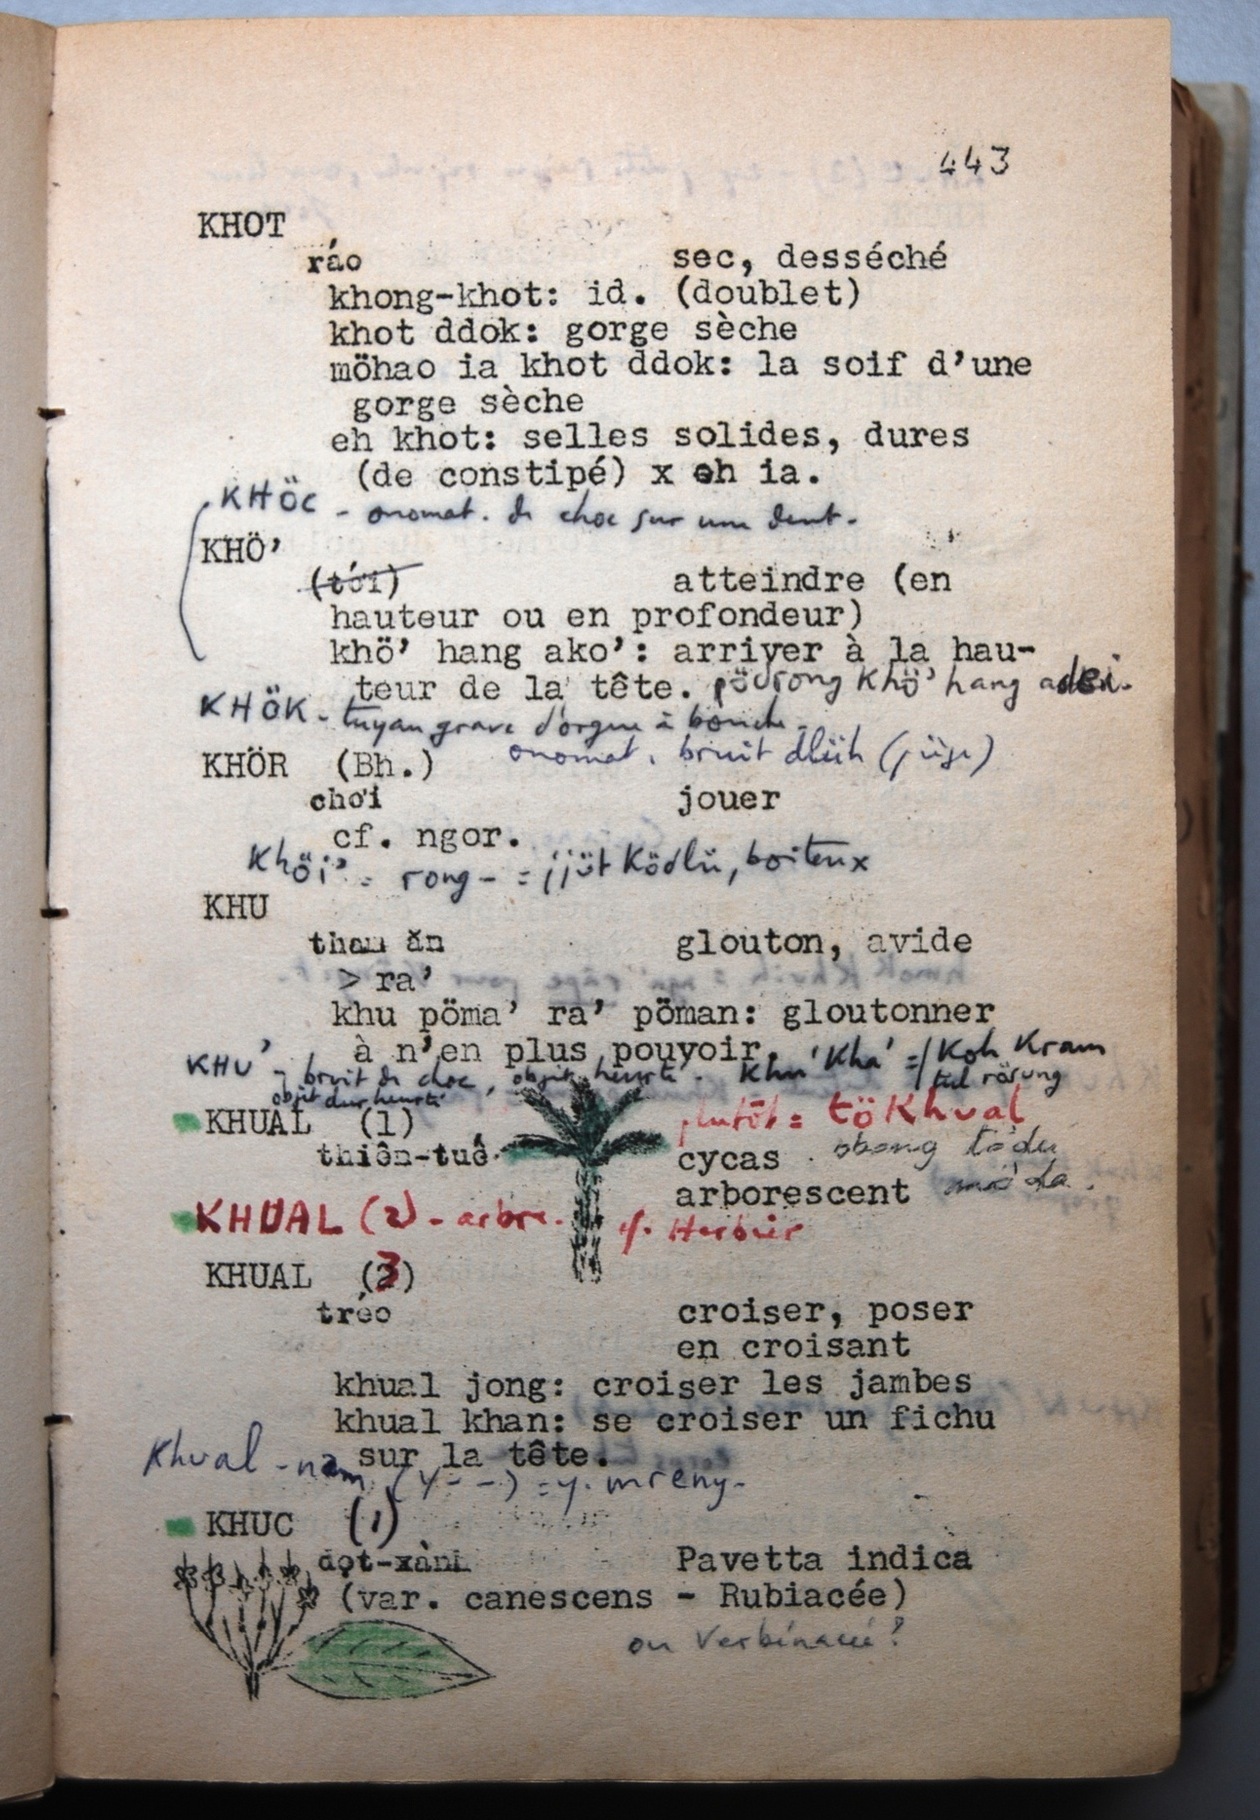 443
KHOT
ráo sec, desséché
khong-khot: id. (doublet)
khot ddok: gorge sèche
möhao ia khot ddok: la soif d’une
gorge sèche
eh khot: selles solides, dures
(de constipé) x eh ia.
KHÖC - onomat. de choc sur une dent.
KHÖ’
(tới) atteindre (en
hauteur ou en profondeur)
khö’ hang ako’: arriver à la hau-
teur de la tête. pödrong Khö’ hang adei.
KHÖK - tuyau grave d'orgue à bouche.
onomat. bruit dlüh
KHÖR (Bh.)
chơi jouer
cf. ngor.
Khöi’ = rong - = jjüt Ködlü, boiteux
KHU
tham ăn glouton, avide
> ra’
khu pöma’ ra’ pöman: gloutonner
à n’en plus pouvoir.
KHU’ - bruit de choc, objet heurté. Khu' Kha' = Koh Kram
objet dur heurté tul rösung
KHUAL (1) plutôt = töKhual
thiên-tuế cycas
arborescent
KHUAL (2) - arbre. cf. Herbier
KHUAL (3)
tréo croiser, poser
en croisant
khual jong: croiser les jambes
khual khan: se croiser un fichu
sur la tête.
Khual - nam (y - -) = y. mreng.
KHUC (1)
dọt-xành Pavetta indica
(var. canescens - Rubiacée)
ou Verbénacée?